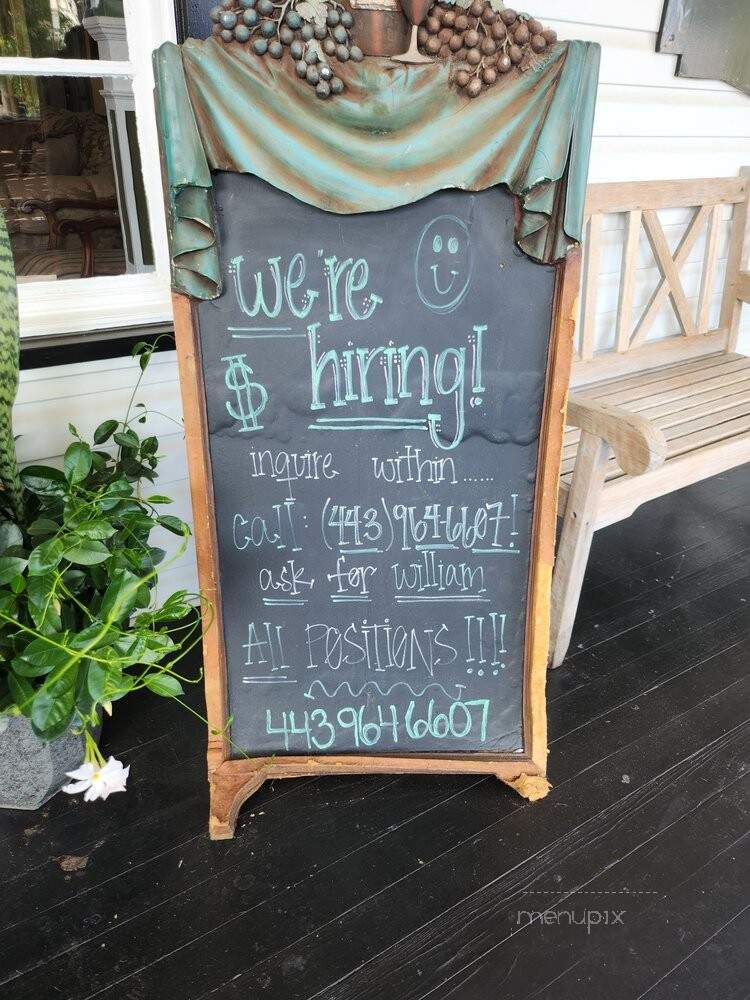 we're
$ hiring!
inquire within......
call: (443)964-6607!
ask for william
All POSITIONS !!!!
4439646607
menupix